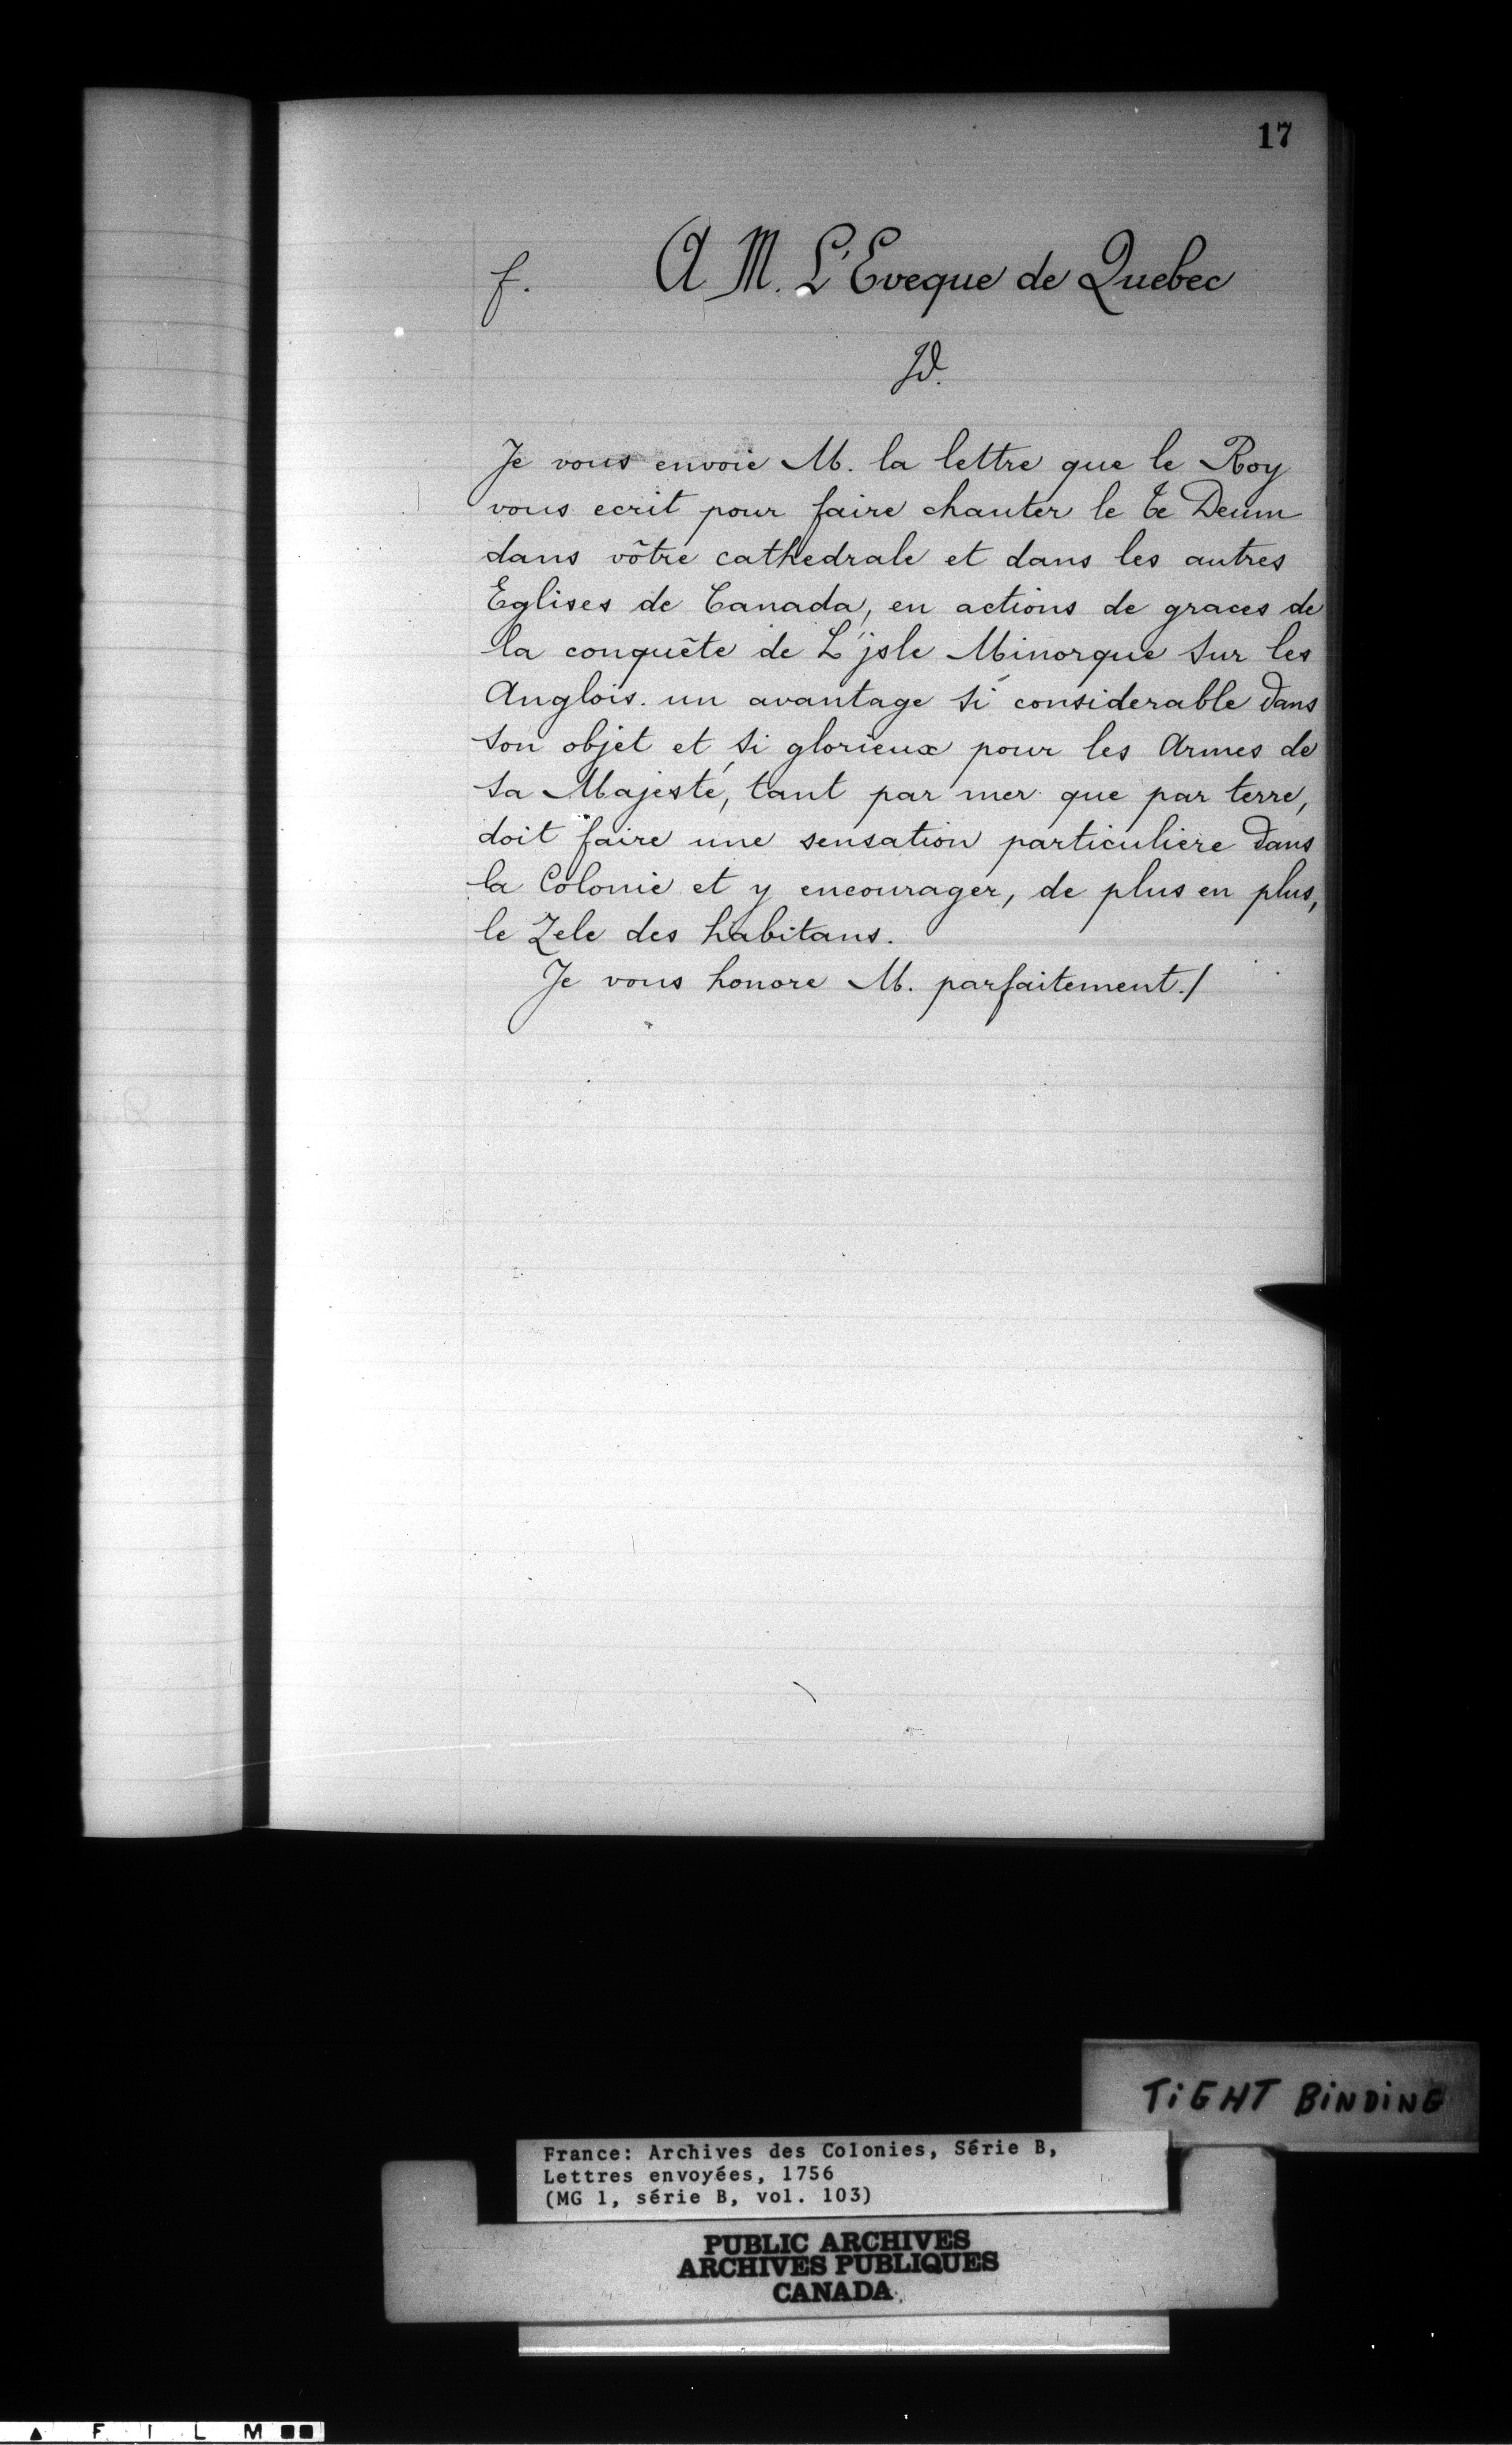 17
f. A M. L'Eveque de Quebec
Id.
Je vous envoie M. la lettre que le Roy
vous ecrit pour faire chanter le Te Deum
dans vôtre cathedrale et dans les autres
Eglises de Canada, en actions de graces de
la conquête de L'jsle Minorque sur les
Anglois. un avantage si considerable dans
son objet et si glorieux pour les Armes de
sa Majesté, tant par mer que par terre,
doit faire une sensation particuliere dans
la Colonie et y encourager, de plus en plus,
le Zele des habitans.
Je vous honore M. parfaitement./
TiGHT BiNDiNG
France: Archives des Colonies, Série B,
Lettres envoyées, 1756
(MG 1, série B, vol. 103)
PUBLIC ARCHIVES
ARCHIVES PUBLIQUES
CANADA
FILM